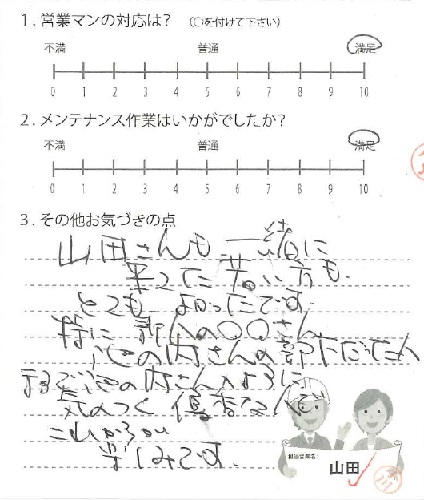 1. 営業マンの対応は? (○を付けて下さい)
不満 普通 満足
0 1 2 3 4 5 6 7 8 9 10
2. メンテナンス作業はいかがでしたか?
不満 普通 満足
0 1 2 3 4 5 6 7 8 9 10
3. その他お気づきの点
山田さんも一緒に
来てた若い方も
とても よかったです
特に新人の〇〇さん
の内さんの部下だった人
の内さんのように
気のつく優秀な人で
これからが
楽しみです。
担当営業名:
山田